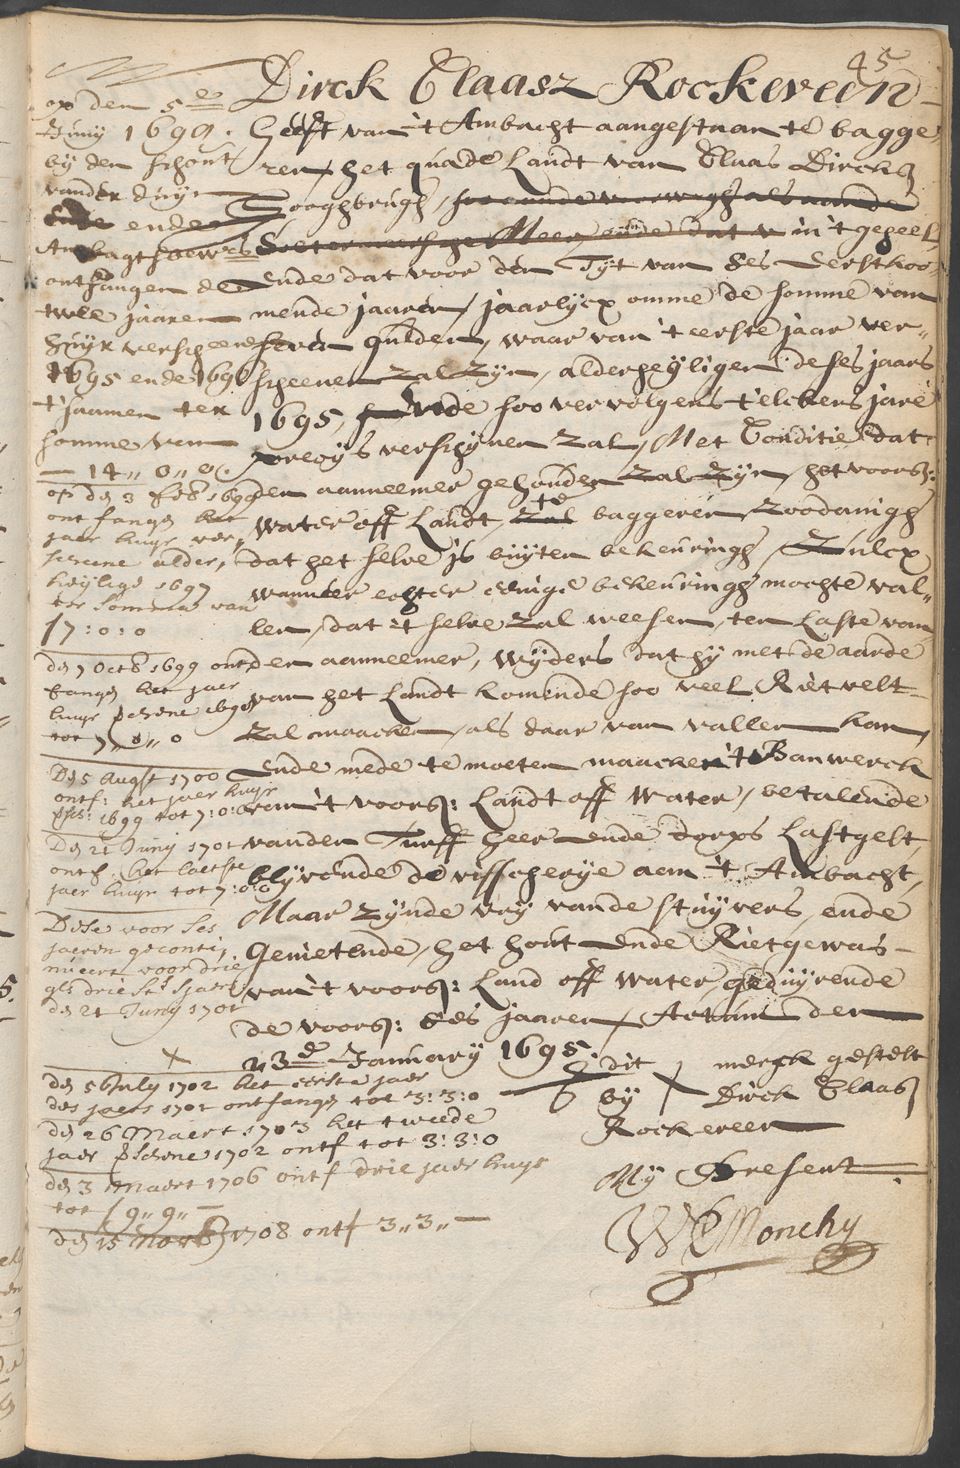 45
Dirck Claasz Rockeveen
Heeft van 't Ambacht aangestaan te bagge„
ren, het quade Landt van Claas Dircksz
Hooghbrugh, soo ende
Soetermeersche Meer, ende dat in 't geheel
ende dat voor den Tyt van ses eerstkoo„
mende jaaren, jaarlycx omme de somme van
seven gulden, waar van 't eerste jaar ver„
scheenen zal zyn, alderheyligen deses jaars
1695, ende soo vervolgens t'elckens jare
precys verschynen zal, Met Conditie dat
den aanneemer gehouden zal zyn, het voors:
water off Landt, te zal baggeren, zoodanigh
dat het selve is buyten bekeuringh, zulcx
wanneer echter eenige bekeuringh mochte val„
len, dat 't selve zal weesen, ten Laste van
den aanneemer, wyders dat hy met de aarde
van het Landt komende soo veel Rietvelt
zal maacken, als daar van vallen kan,
ende mede te moeten maacken 't Banwerck
van 't voors: Landt off water, betalende
van den Turff heer ende dorps Lastgelt,
blyvende de visscherye aan 't Ambacht,
Maar zynde vry vande stuyvers, ende
genietende, het hout ende Rietgewas
van 't voors: Land off water, geduyrende
de voors: ses jaaren, Actum den
23e January 1695.
dit merck gestelt
by X Dirck Claasz
Rockeveen
My Present
W D Monchy
op den 5e
Juny 1699.
by den schout
vander duyn
ende
Ambagtsbewrs
ontfangen de
twee jaaren
huyr verscheene
1695 ende 1696
t'saamen ter
somme van
— 14„ 0„ 0.
op den 3 1699
ontfangen het
jaer huyr ver„
scheene alder„
heylige 1697
ter somma van
17:0:0
den 7 Octob 1699 ont
fangen het jaer
huyr verschene 1698
tot 7„ 0„ 0
Den 5 Augst 1700
ontf: het jaer huyr
1699 tot 7:0:0
Den 21 Juny 1701
ontf. het laetste
jaer huyr tot 7:0:0
Dese voor ses
jaeren geconti„
nueert voor drie
gls drie sts sjaers
den 21 Juny 1701
X
den 5 July 1702 het eerste jaer
des jaers 1701 ontfangen tot 3:3:0
den 26 Maert 1703 het tweede
jaer verschene 1702 ontf tot 3:3:0
den 3 Maert 1706 ontf drie jaer huyr
tot 9„ 9„ —
den 15 1708 ontf 3„ 3„ —